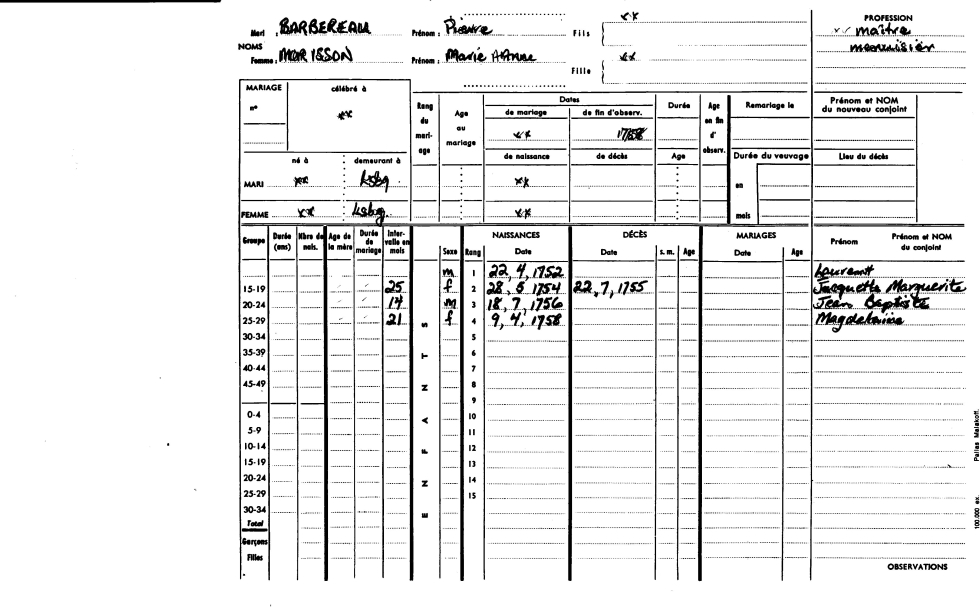 Mari : BARBEREAU Prénom : Pierre Fils xx PROFESSION
xx maître
NOMS menuisier
Femme : MORISSON Prénom : Marie Anne Fille xx
MARIAGE célébré à
n° xx
Rang du mariage Age au mariage Dates Durée Age en fin d'observ. Remariage le Prénom et NOM du nouveau conjoint
de mariage de fin d'observ.
xx
né à demeurant à de naissance de décès Age Durée du veuvage Lieu du décès
MARI xx Lsbg xx en
FEMME xx Lsbg. xx mois
Groupe Durée (ans) Nbre de nais. Age de la mère Durée de mariage Intervalle en mois ENFANTS Sexe Rang NAISSANCES Date DÉCÈS Date s. m. Age MARIAGES Date Age Prénom Prénom et NOM du conjoint
m 1 22, 4, 1752 Laurent
15-19 25 f 2 28, 5 1754 22, 7, 1755 Jacquette Marguerite
20-24 14 m 3 18, 7, 1756 Jean Baptiste
25-29 21 f 4 9, 4, 1758 Magdelaine
30-34 5
35-39 6
40-44 7
45-49 8
9
0-4 10
5-9 11
10-14 12
15-19 13
20-24 14
25-29 15
30-34
Total
Garçons
Filles
OBSERVATIONS
100,000 ex. Pairas Malakoff.